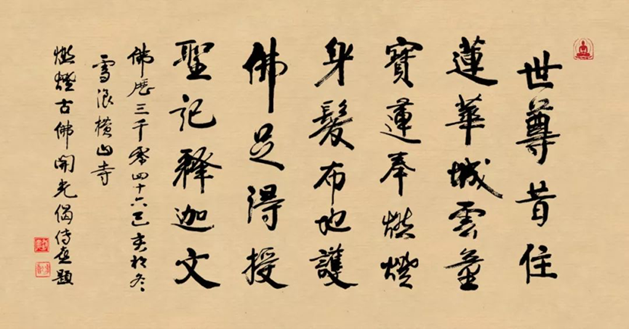 世尊昔住
蓮華城雲童
寶蓮奉燃燈
身髮布地護
佛足得授
聖記釋迦文
佛歷三千零四十六己亥冬
雪浪橫山寺
燃燈古佛開光偈題